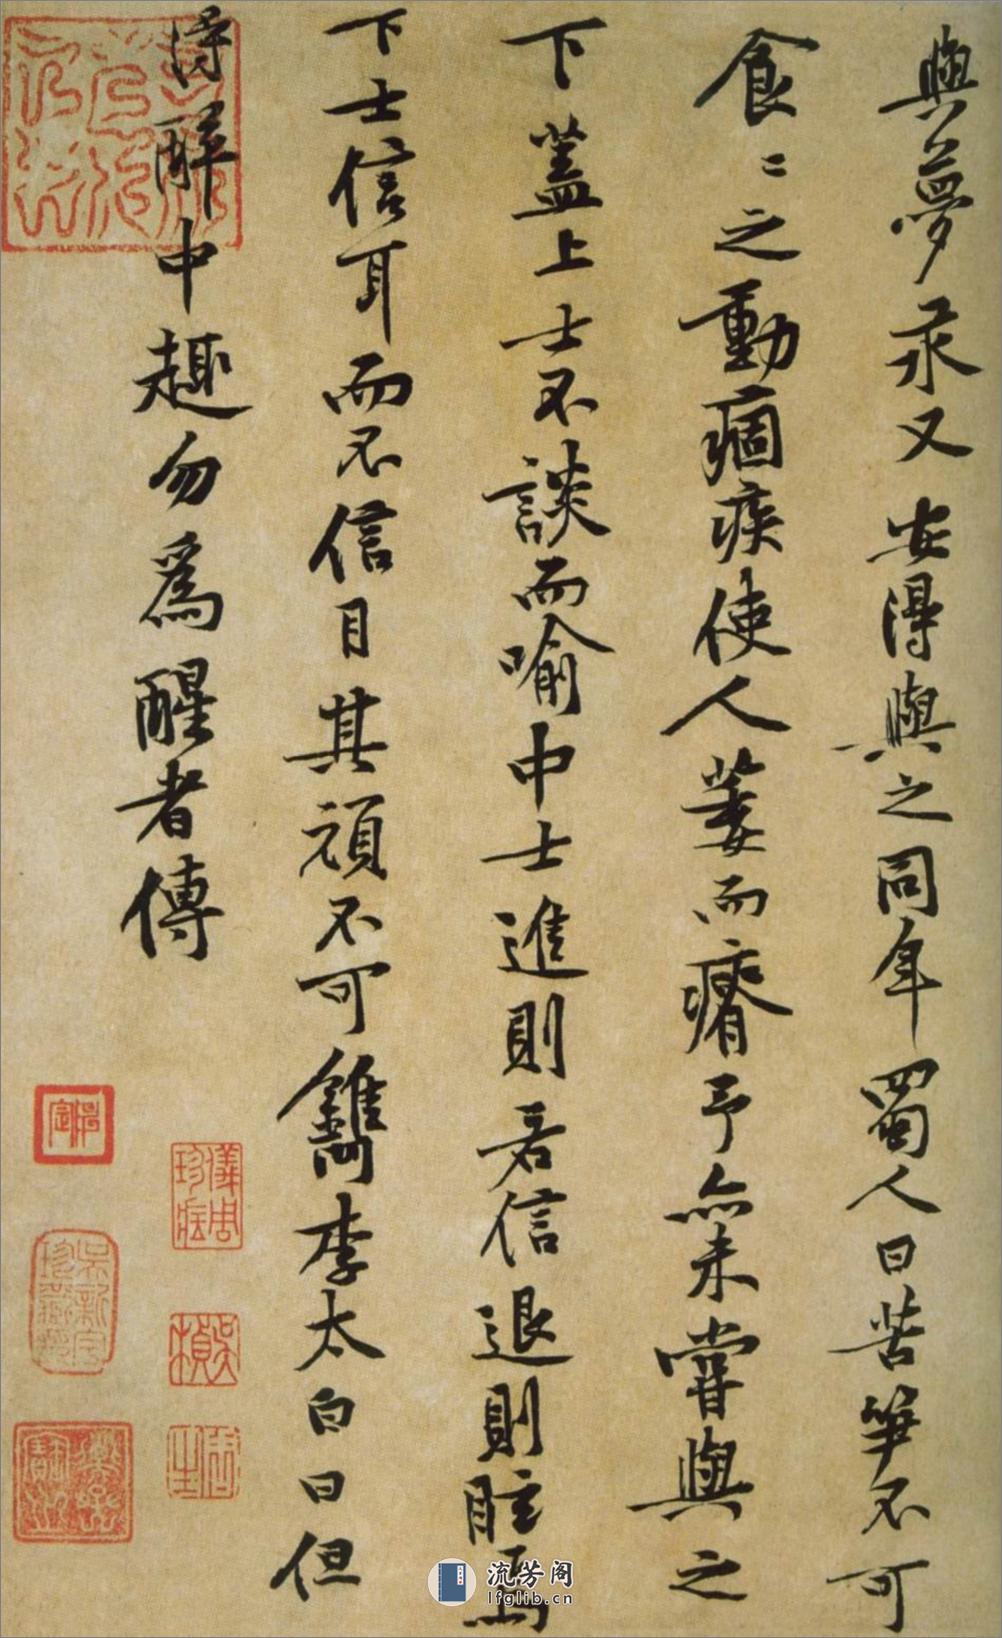 與夢永又安得與之同年蜀人曰苦笋不可
食〻之動痼疾使人萎而瘠予亦未嘗與之
下蓋上士不談而喻中士進則若信退則眩焉
下士信耳而不信目其頑不可鐫李太白曰但
得醉中趣勿為醒者傳
儀周珍藏
流芳阁
lfglib.cn